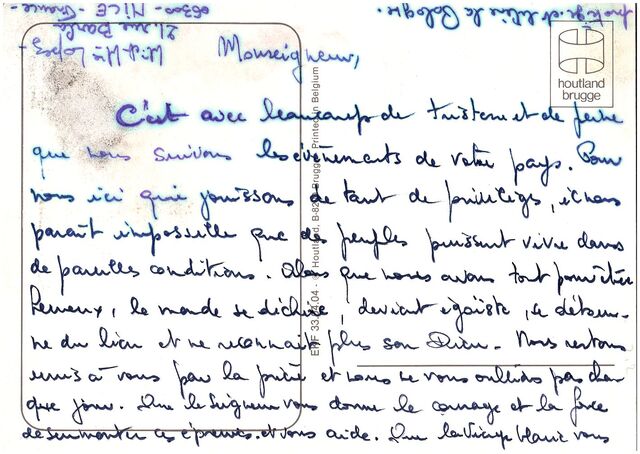 Monseigneur,
C'est avec beaucoup de tristesse et de peine
que nous suivons les évènements de votre pays. Pour
nous ici qui jouissons de tant de privilèges, il nous
paraît impossible que des peuples puissent vivre dans
de pareilles conditions. Alors que nous avons tout pour être
heureux, le monde se déchire, devient égoïste, se détour-
ne du bien et ne reconnaît plus son Dieu. Nous restons
unis à vous par la prière et nous ne vous oublions pas cha
que jour. Que le Seigneur vous donne le courage et la force
de surmonter ces épreuves et vous aide. Que la Vierge bénie vous
protège et de la Pologne.
Mr et Mme Lopez
21, rue Barla
06300 - NICE - France -
houtland
brugge
EHF 33.04.04 - © Houtland, B-82 Brugge Printed in Belgium